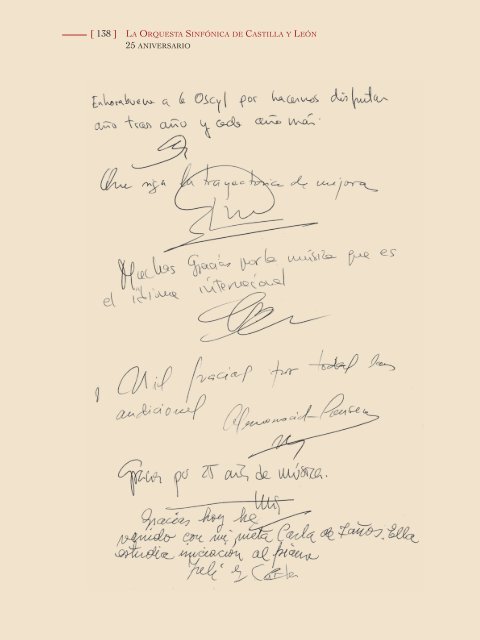 [ 138 ] La Orquesta Sinfónica de Castilla y León
25 aniversario
Enhorabuena a la Oscyl por hacernos disfrutar
año tras año y cada año más.
Que siga la trayectoria de mejora
Muchas Gracias por la música que es
el idioma internacional
Mil gracias por todas las
audiciones
Gracias por 25 años de música.
Gracias hoy he
venido con mi nieta Carla de 7 años. Ella
estudia iniciacion al piano
Feli y Carla